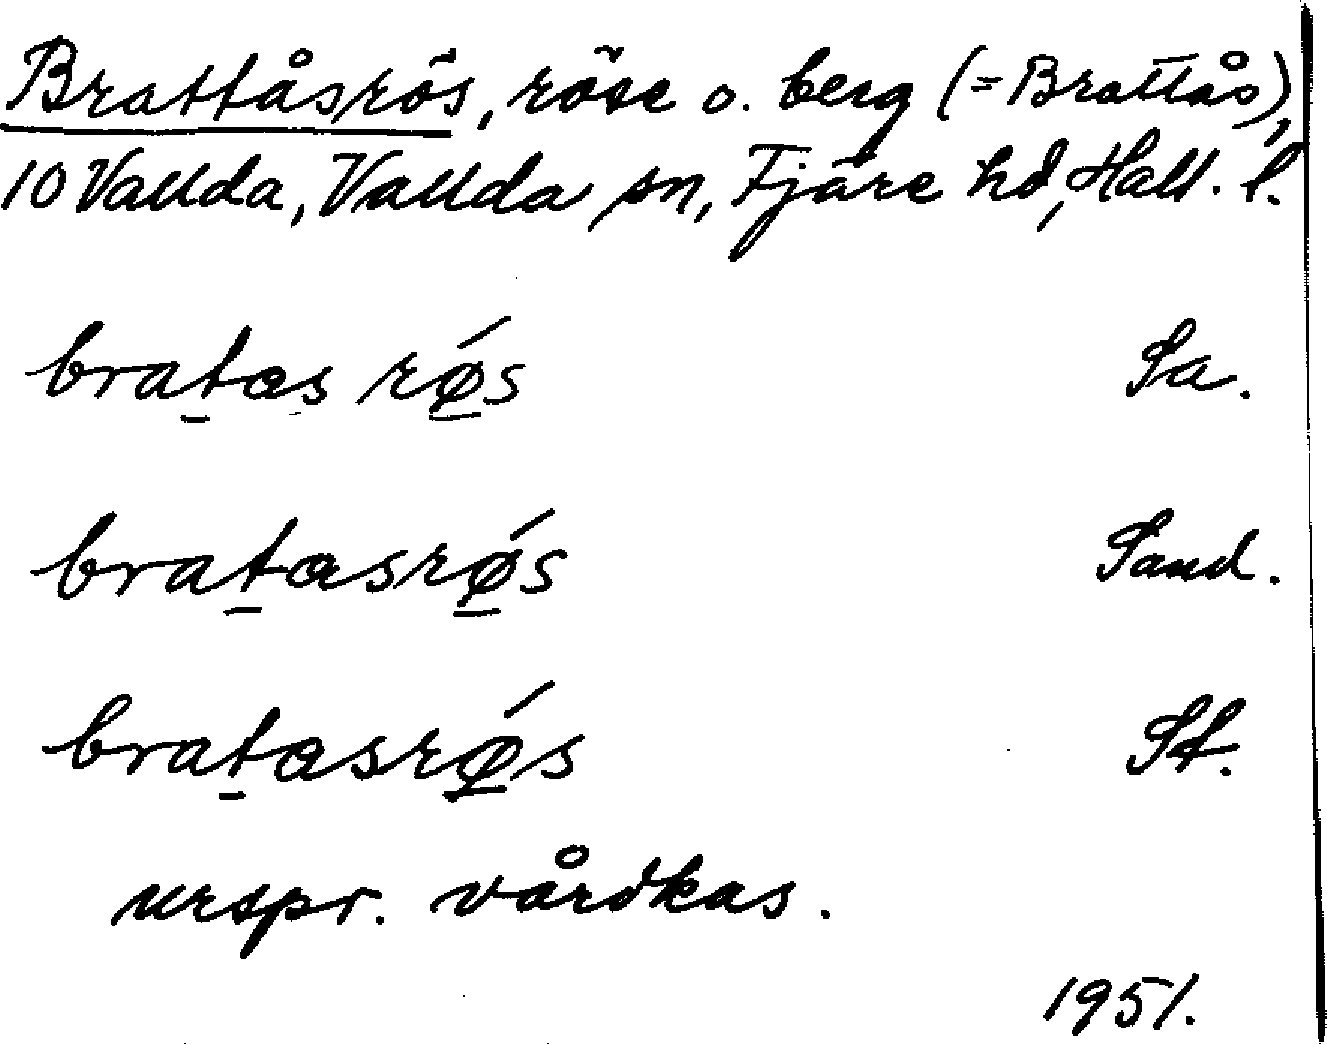 Brattåsrös, röse o. berg (=Brattås),
10 Vallda, Vallda sn, Fjäre hd, Hall. l.
bratas rǿs Sa.
bratasrǿs Sand.
bratasrǿs St.
urspr. vårdkas.
1951.